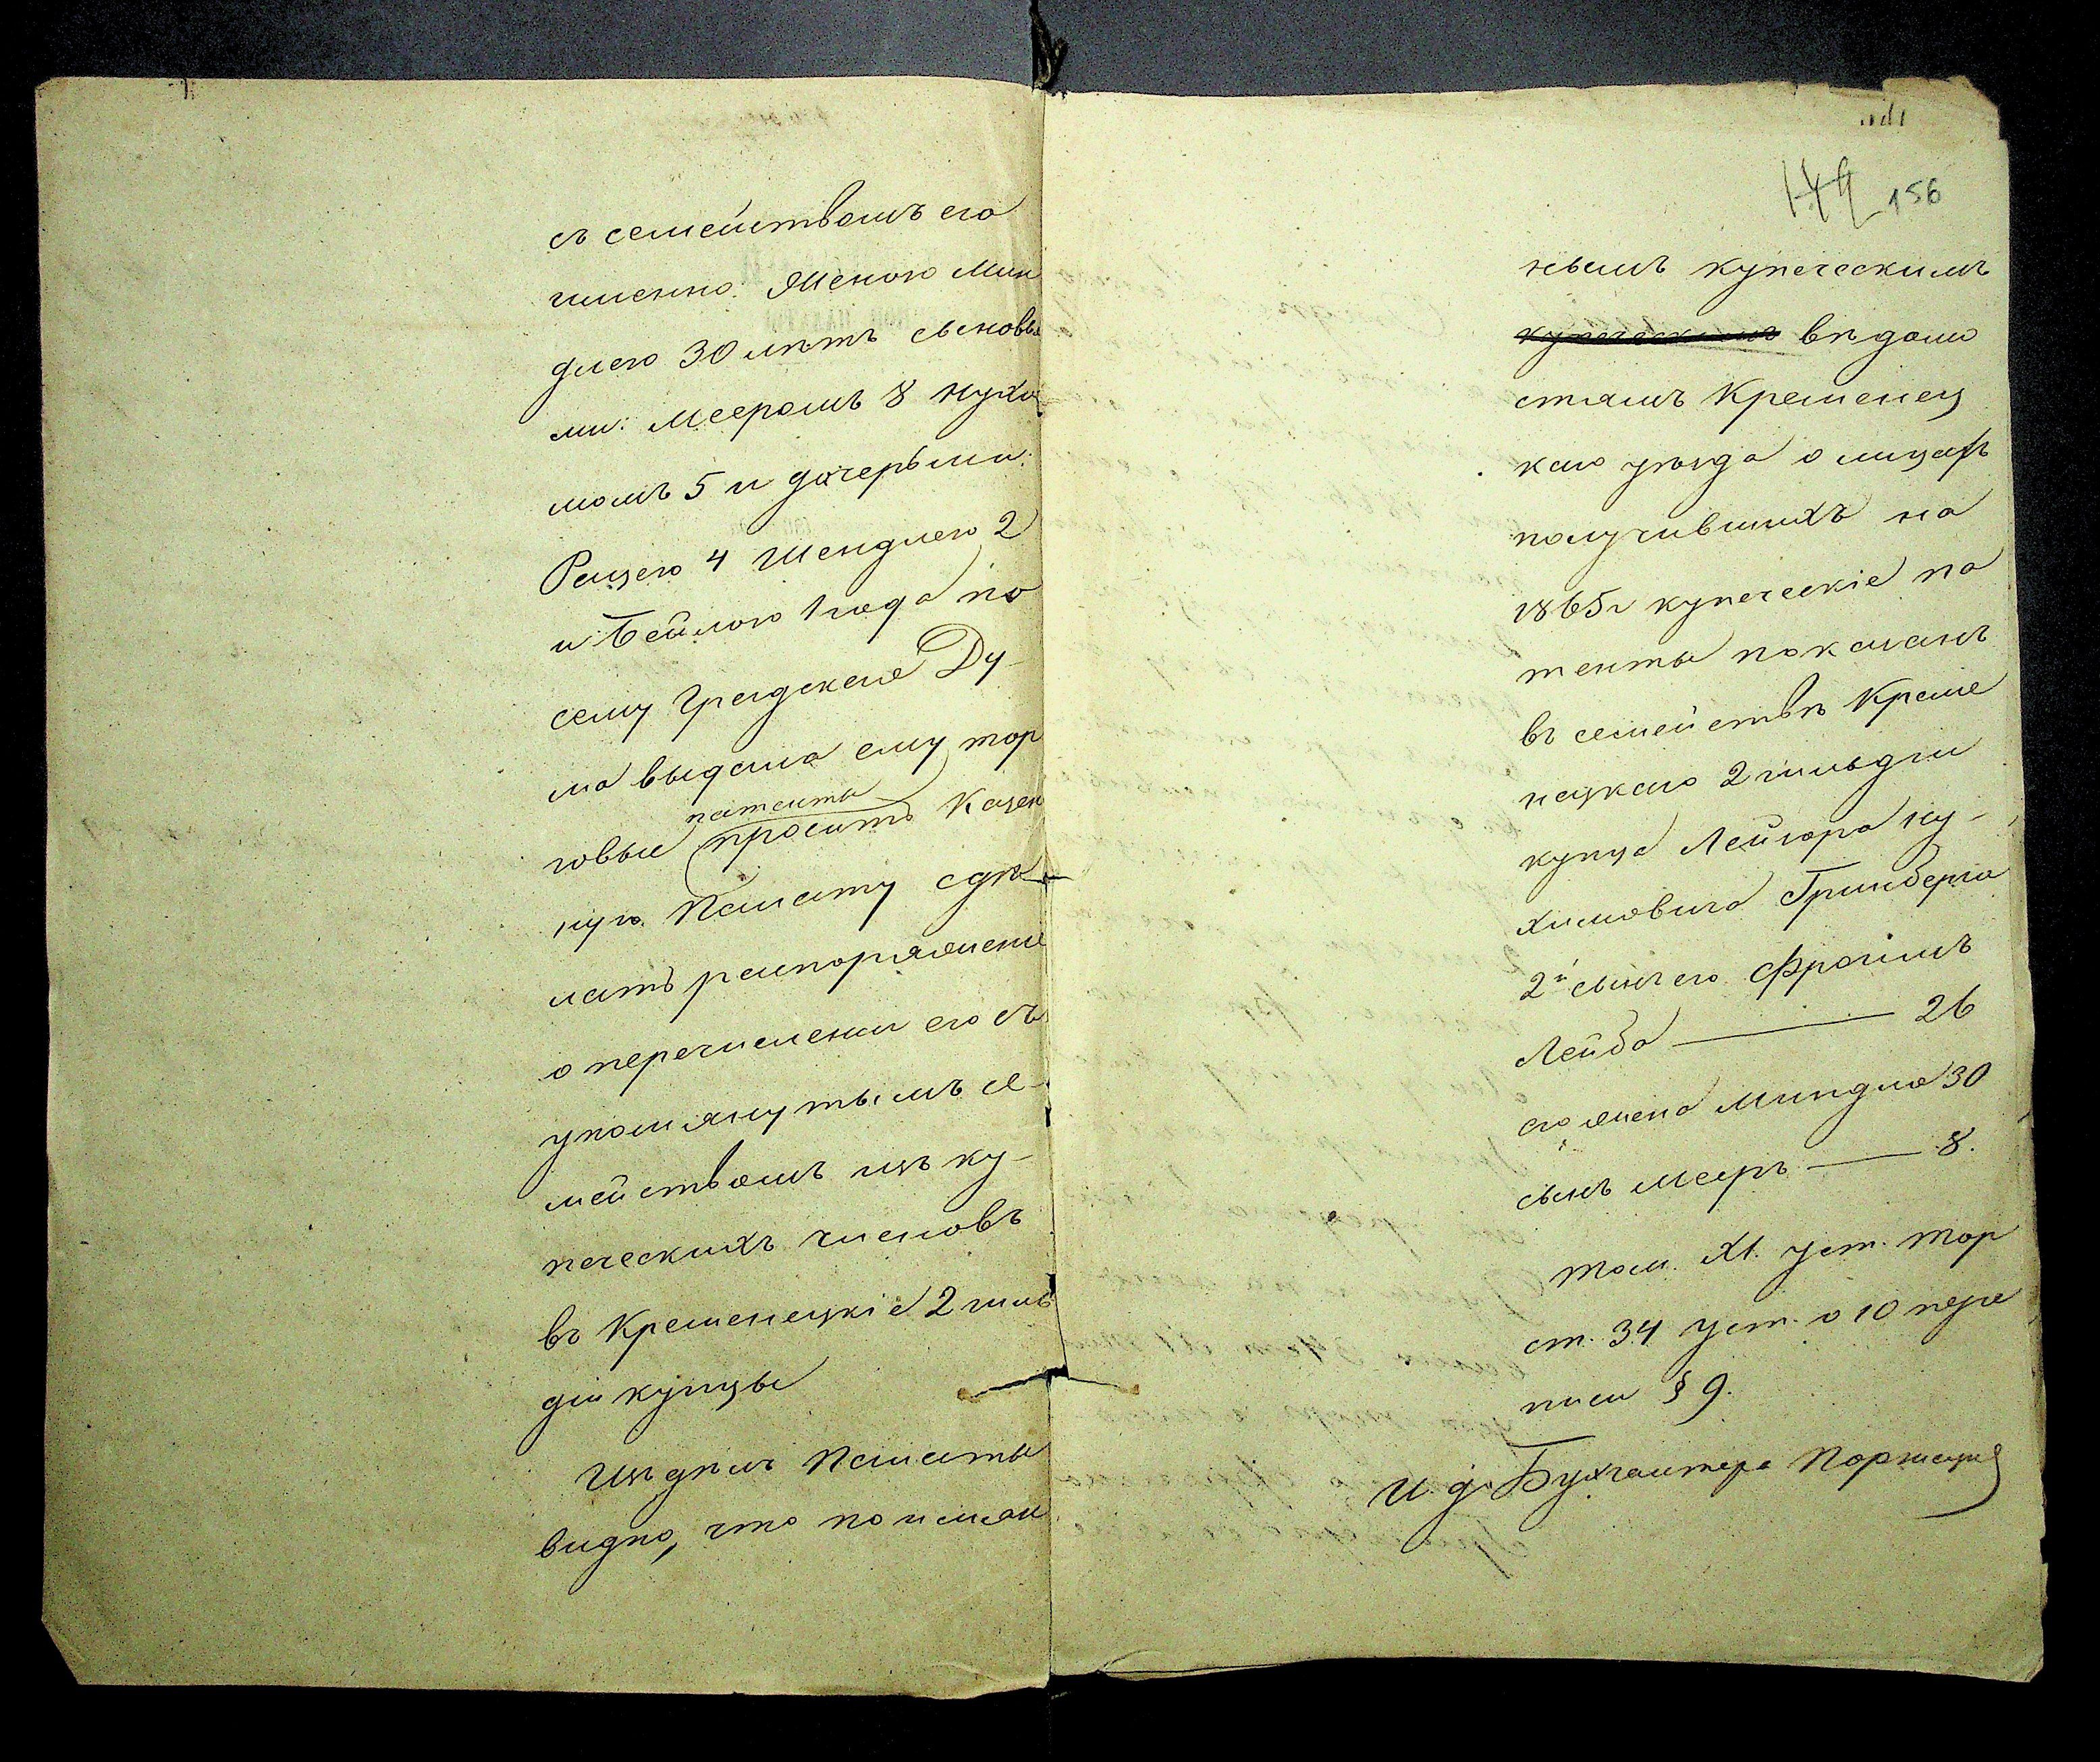 съ семействомъ его
именно: Женою Мин
длею 30 лѣтъ сыновья
ми: Мееромъ 8 Нухи
момъ 5 и дочерьми:
Рейзею 4 Шендлею 2
и Бейлою 1 года по
сему Градская Ду-
ма выдала ему тор
патенты
говые проситъ Казен
ную Палату сдѣ
лать распоряженіе
о перечислении его съ
упомянутымъ се-
мействомъ изъ ку-
печескихъ сыновъ
въ Кременецкіе 2 гиль
діи купцы
Изъ дѣлъ Палаты
видно, что по имян
149 156
нымъ купеческимъ
купеческимъ вѣдомо
стямъ Кременец
каго уѣзда о лицахъ
получившихъ на
1865 г купеческіе па
тенты показанъ
въ семействѣ Креме
нецкаго 2 гильдіи
купца Лейзора Ну-
химовича Гринберга
2й сынъ его Фроимъ
Лейба — 26
его жена Миндля 30
сынъ Мееръ — 8.
Том. XI. Уст. Тор
ст. 34 Уст. о 10 пере
писи § 9.
И. д. Бухгалтера